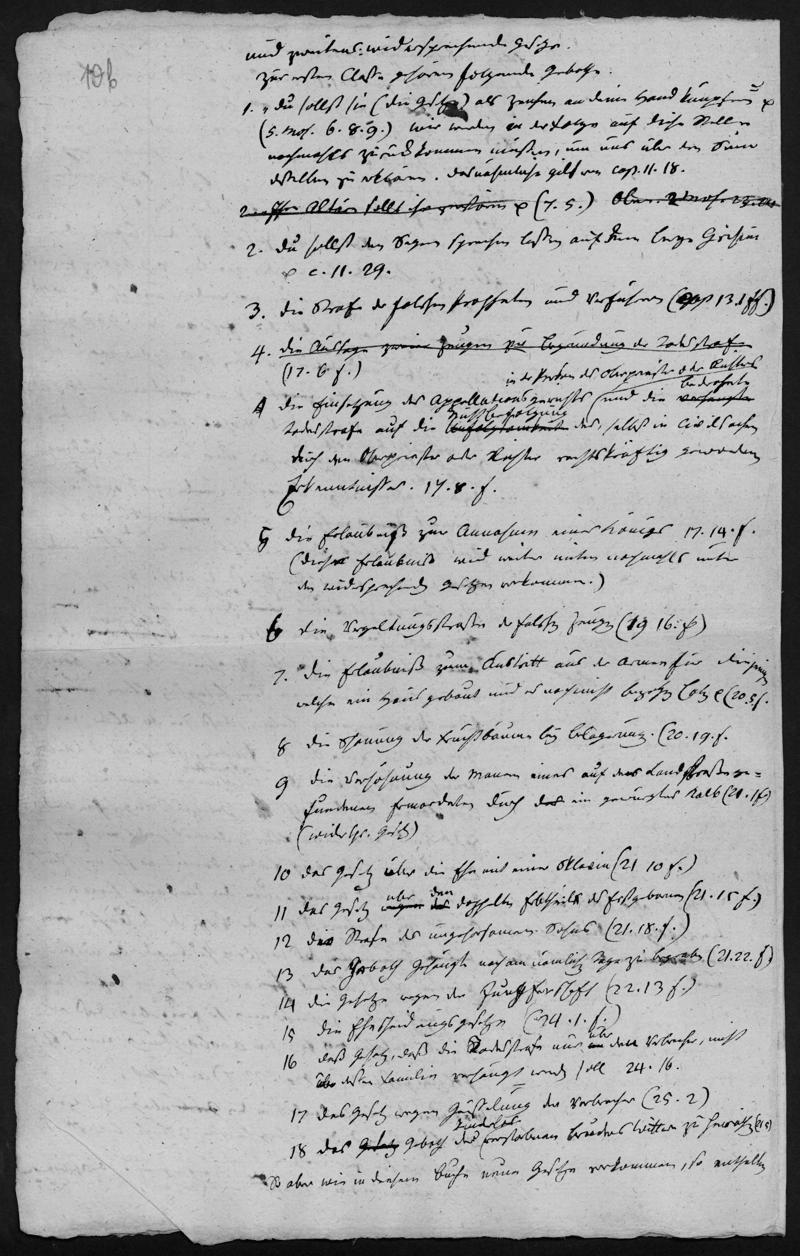 106
und zweitens: widersprechende Gesetze.
Zur ersten Classe gehören folgende Gebothe.
1. „du sollst sie (die Gesetze) als Zeichen an deine Hand knüpfen“ p
(5. Mos. 6. 8. 9.) wir werden in der Folge auf diese Stelle
nochmahls zurückkommen müssen, um uns über den Sinn
desselben zu erklären. Das nähmliche gilt von cap. 11. 18.
2. Altäre sollt ihr zerstören p (7. 5.) Oben 2 Mos.
2. du sollst den Segen sprechen lassen auf dem Berge Grisim
p c. 11. 29.
3. die Strafe der falschen Propheten und Verführer (cap 13. 1 ff.)
4. die Aussage zweier Zeugen zur Begründung der Todesstrafe
(17. 6 f.)
in der Person des Oberpriesters oder Richters
4 die Einsetzung des Appellationsgerichts (und die bedrohete
Todesstrafe auf die Nichtbefolgung des, selbst in Civilsachen
durch den Oberpriester oder Richter rechtskräftig gewordenen
Erkenntnisses. 17. 8. f.
5 die Erlaubniß zur Annahme eines Königs 17. 14. f.
(diese Erlaubniß wird weiter unten nochmahls unter
den widersprechenden Gesetzen vorkommen.)
6 die Vergeltungsstrafe der falschen Zeugen (19 16. f)
7. die Erlaubniß zum Austritt aus der Armee für diejenigen
welche ein Haus gebaut und es noch nicht bezogen haben p (20. 5 f.
8 die Schonung der Fruchtbäume bey Belagerung. (20. 19. f.
9 die Versöhnung der Manen eines auf der Landstraße ge=
fundenen Ermordeten durch ein gewürgtes Kalb (21. 1 f)
(wider Gesetz)
10 das Gesetz über die Ehe mit einer Sklavin (21 10 f.)
11 das Gesetz über den doppelten Erbtheil des Erstgebornen (21. 15 f.)
12 die Strafe des ungehorsamen Sohns (21. 18. f.)
13 das Geboth Gehängte noch am nämlichen Tage zu begraben (21. 22. f)
14 die Gesetze wegen der Jungferschaft (22. 13 f.)
15 die Ehescheidungsgesetze (24. 1. f.)
16 das Gesetz, daß die Todesstrafe nur über den Verbrecher, nicht
über dessen Familie verhängt werden soll 24. 16.
17 das Gesetz wegen Geißelung der Verbrecher (25. 2)
18 das Geboth des kinderlos verstorbenen Bruders Wittwe zu heirathen (25. 5)
So aber wie in diesem Buche neue Gesetze vorkommen, so enthalten